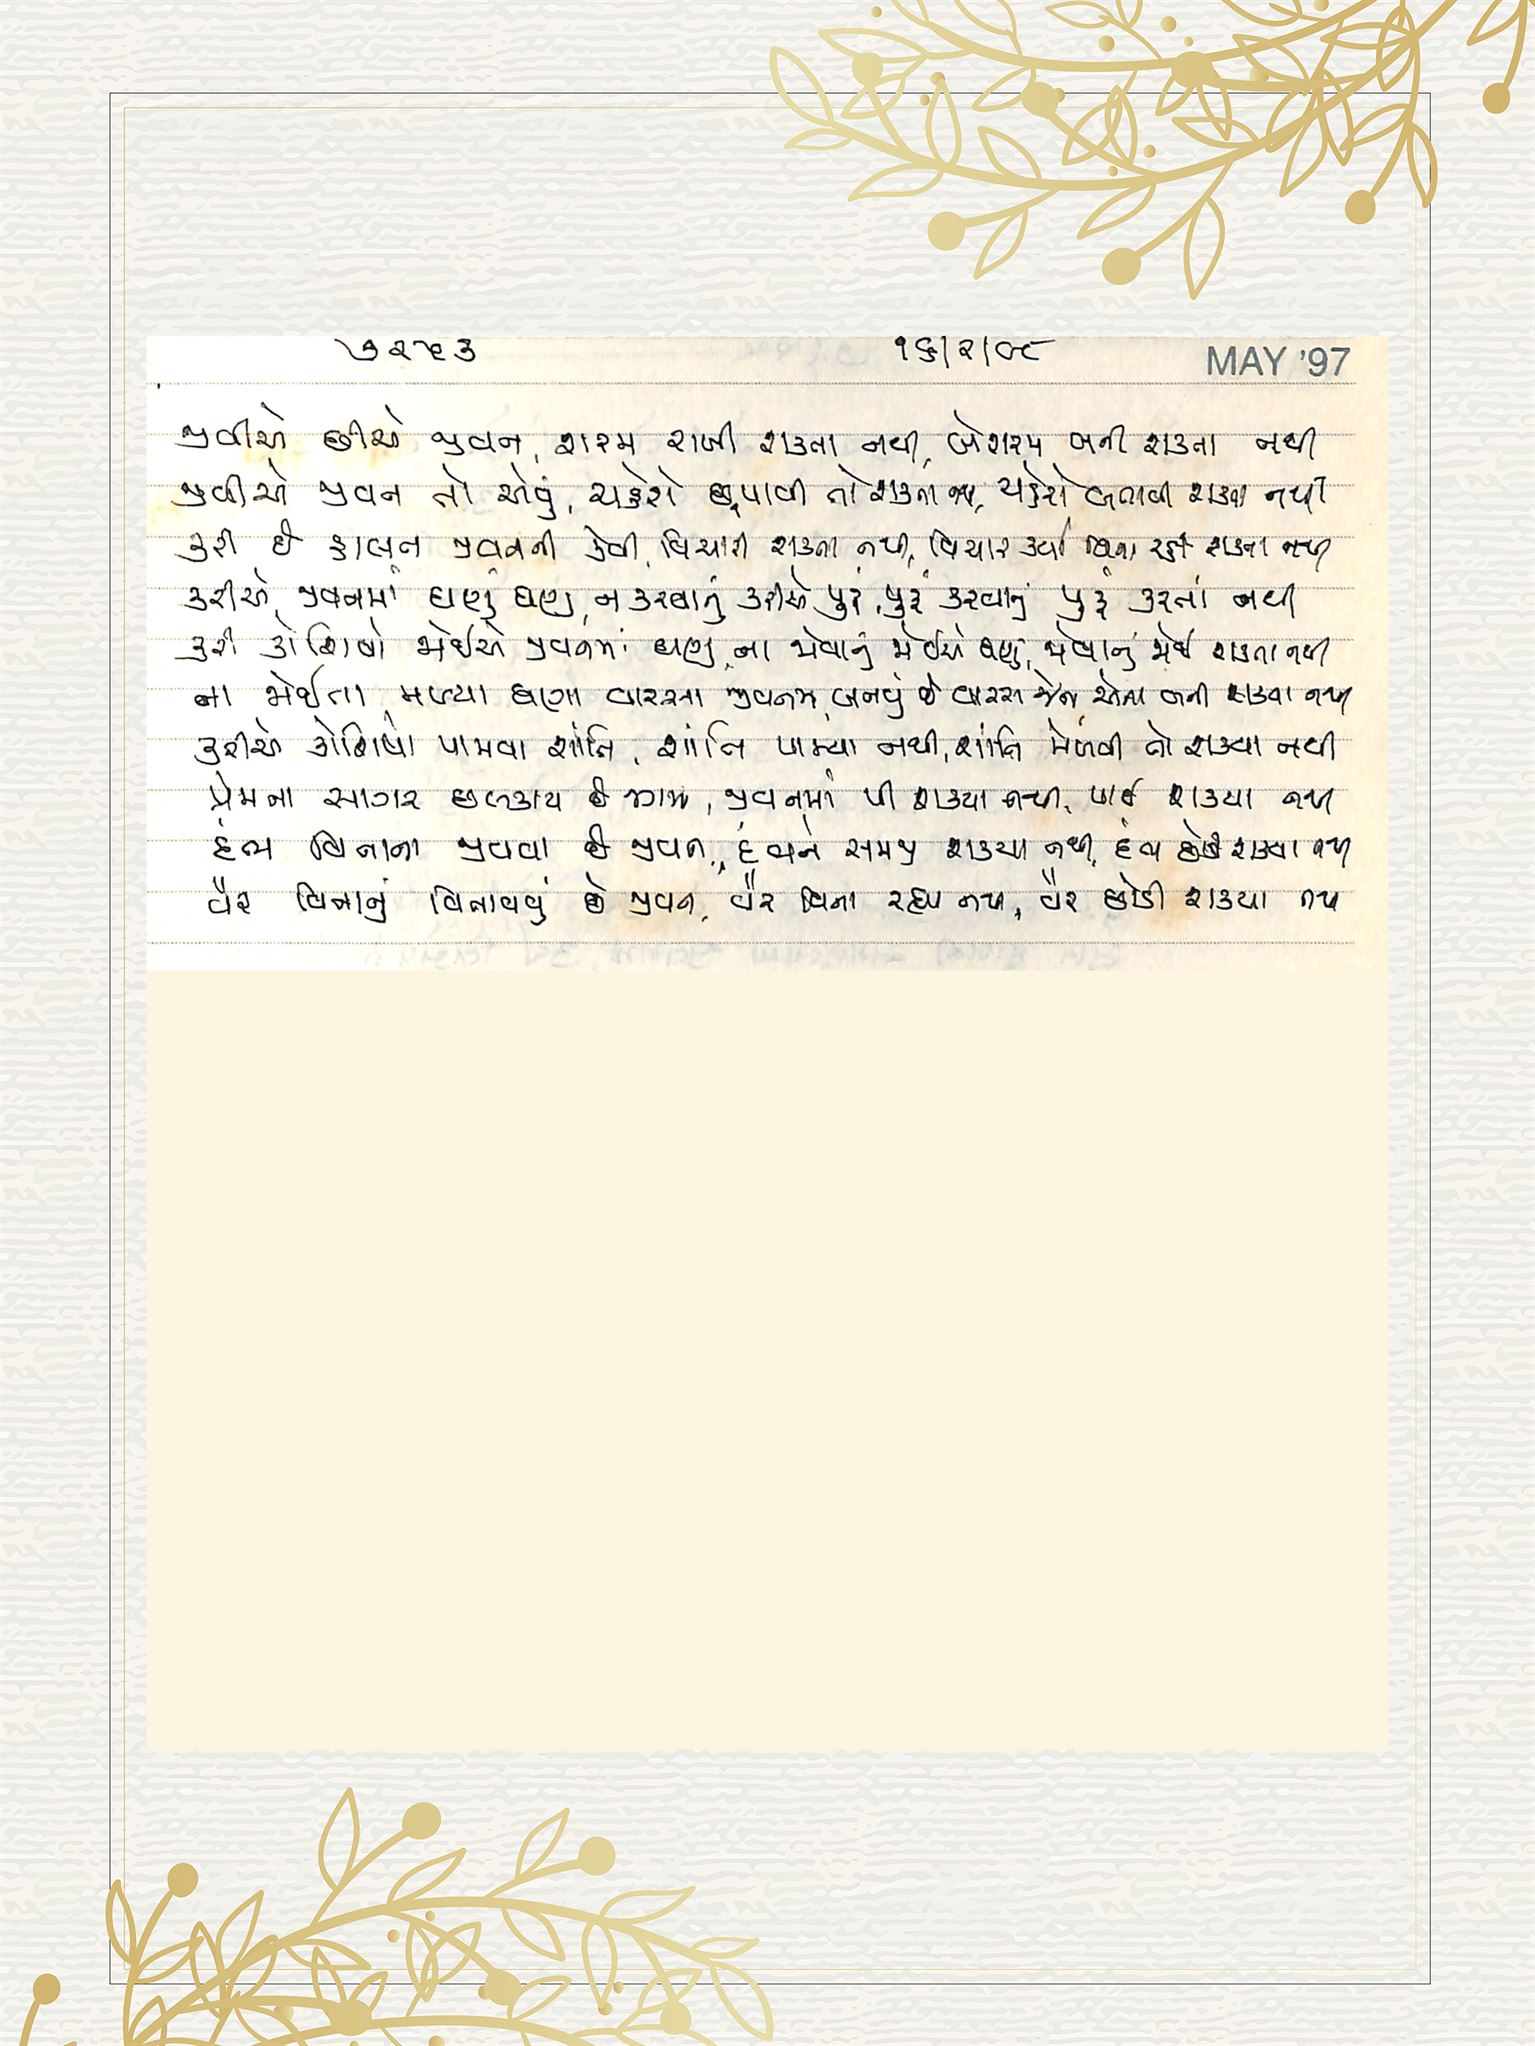 ૭૨૫૩ ૧૬/૨/૯૮ MAY '97
જીવીએ છીએ જીવન, શરમ રાખી શકતા નથી, બેશરમ બની શકતા નથી
જીવીએ જીવન તો એવું, ચહેરો છુપાવી તો શકતા નથી, ચહેરો બતાવી શકતા નથી
કરી છે હાલત જીવનની કેવી, વિચારી શકતા નથી, વિચાર કર્યા વિના રહી શકતા નથી
કરીએ જીવનમાં ઘણું ઘણું, ન કરવાનું કરીએ પુરૂં, પુરૂં કરવાનું પુરૂં કરતાં નથી
કરી કોશિષો જોઈએ જીવનમાં ઘણું, ના જોવાનું જોઈએ ઘણું, જોવાનું જોઈ શકતા નથી
ના જોઈતા મળ્યા ઘણા વારસા જીવનમાં, બનવું છે વારસ જેના એના બની શક્યા નથી
કરીએ કોશિષો પામવા શાંતિ, શાંતિ પામ્યા નથી, શાંતિ મેળવી તો શક્યા નથી
પ્રેમના સાગર છલકાય છે જીવનમાં પી શક્યા નથી, પાઈ શક્યા નથી
દંભ વિનાના જીવવા છે જીવન, દંભને સમજી શક્યા નથી, દંભ છોડી શક્યા નથી
વૈર વિનાનું વિતાવવું છે જીવન, વૈર વિના રહ્યા નથી, વૈર છોડી શક્યા નથી